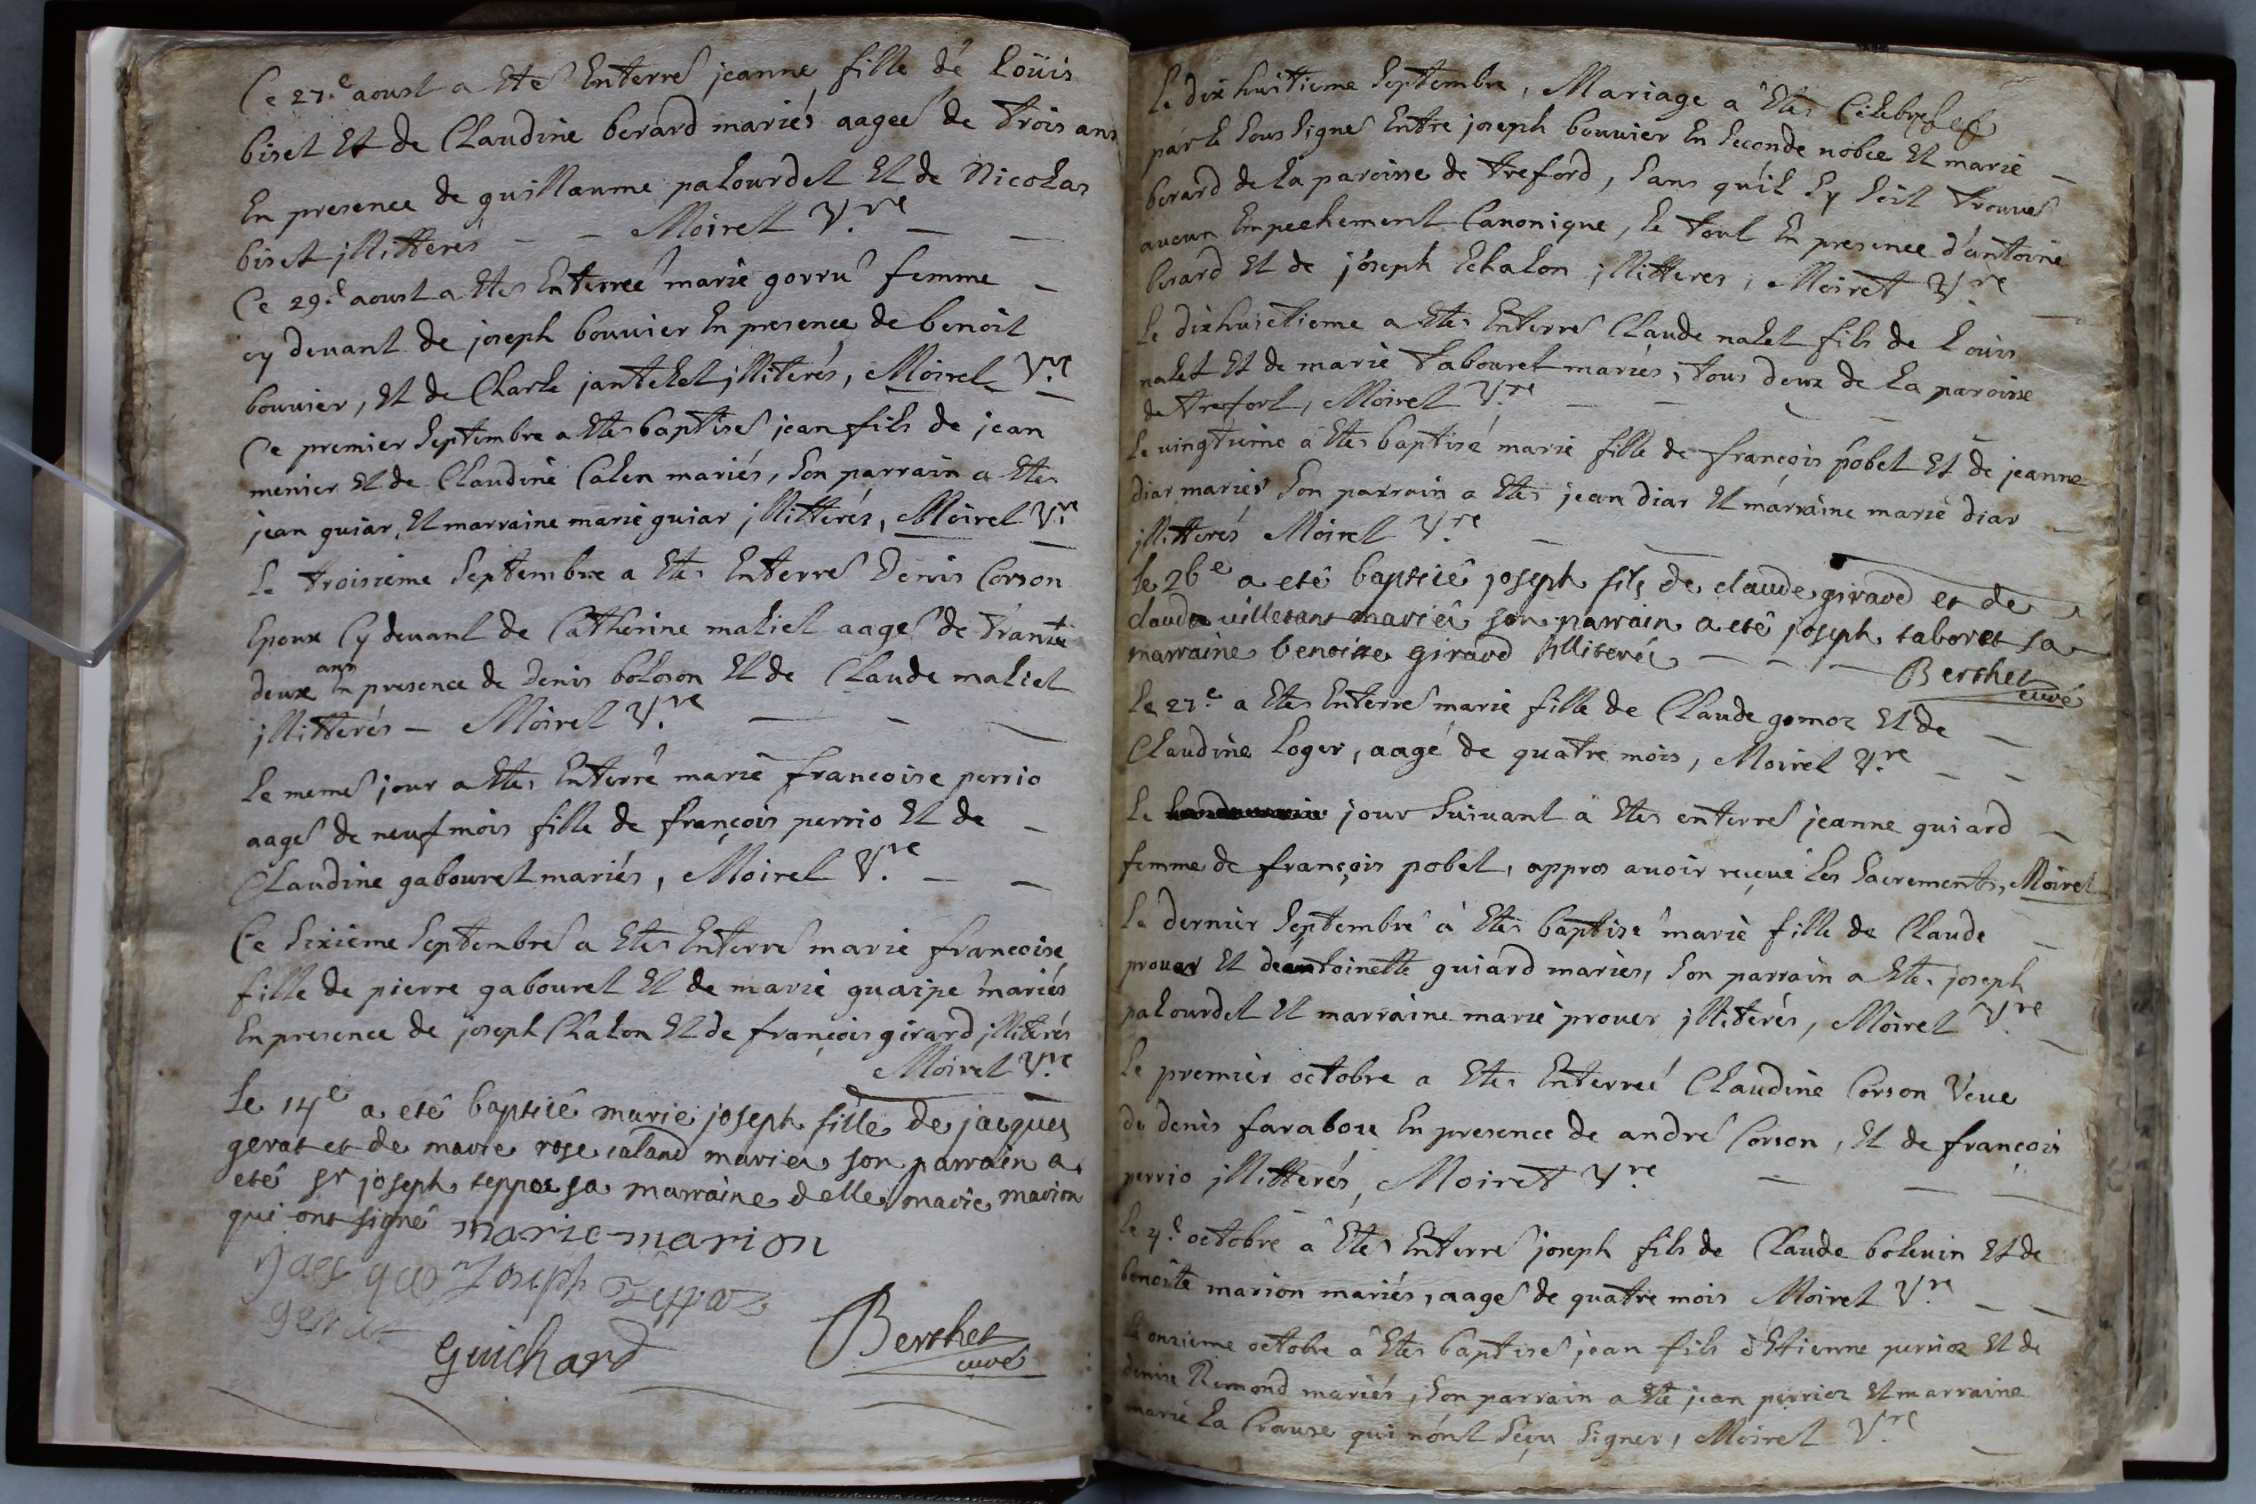 Ce 27.e aoust a Etes Enterres jeanne fille de Loüis
biset Et de Claudine berard mariés aagee de trois ans
En presence de guillaume palourdet Et de Nicolas
biset jllitterés - - Moiret V.re
Ce 29.e aoust a Etes Enterreé marie gorru femme
cy devant de joseph bouvier En presence de benoit
bouvier, Et de Charle jantelet jlliterés, Moiret V.re
Ce premier Septembre a Etes baptisés jean fils de jean
menier Et de Claudine Calen mariés, Son parrain a Etes
jean guiar, Et marraine marie guiar jllitterés, Moiret V.re
Le troisieme Septembre a Etes Enterres Denis Corson
Epoux Cy devant de Catherine maliet aages de trante
deux ans En presence de Denis boloson Et de Claude maliet
jllitterés - Moiret V.re
Le memes jour a Etes Enterré marie francoise perrio
aages de neuf mois fille de françois perrio Et de
Claudine gabouret mariés, Moiret V.re
Ce Sixieme Septembres a Etes Enterres marie francoise
fille de pierre gabouret Et de marie guaipe mariés
En presence de joseph Chalon Et de françois girard jlliterés
Moiret V.re
Le 14e a eté baptisé marie joseph fille de jacques
gerat et de marie rose caland mariés son parrain a
eté sr joseph teppaz sa marraine delle marie marion
qui ont signé marie marion
jacques Joseph Teppaz
gerat
Guichard Berthet
curé
Le dix huitieme Septembre, Mariage a Etes Celebres
par le Sous Signes Entre joseph bouvier En Seconde nobce Et marie
berard de la paroisse de treford, Sans qu'il Sy Soit trouves
aucun Empechement Canonique, le tout En presence d'antoine
berard Et de joseph Echalon jllitteres, Moiret V.re
Le dixhuictieme a Etes Enterres Claude nalet fils de Louis
nalet Et de marie tabouret mariés, tous deux de la paroisse
de trefort, Moiret V.re
Le vingtieme a Etes baptisé marie fille de françois pobet Et de jeanne
diar mariés Son parrain a Etes jean diar Et marraine marie diar
jllitterés Moiret V.re
le 26e a eté baptisé joseph fils de claude giraud et de
clauda villetant mariés son parrain a eté joseph taboret sa
marraine benoitte giraud jlliterés
Berthet
curé
Le 27.e a Etes Enterres marie fille de Claude gomoz Et de
Claudine Loger, aagé de quatre mois, Moiret V.re
Le jour Suivant a Etes enterres jeanne guiard
femme de françois pobet, appres avoir reçeue les Sacrements, Moiret
Le dernier Septembre à Etes baptisé marie fille de Claude
prouer Et de antoinette guiard mariés, Son parrain a Etes joseph
palourdet Et marraine marie prouer jlliterés, Moiret V.re
Le premier octobre a Etes Enterreé Claudine Corson Veue
de denis faraboz En presence de andre Corson, Et de françois
perrio jllitterés, Moiret V.re
Le 4.e octobre a Etes Enterres joseph fils de Claude bolevin Et de
benoite marion mariés, aages de quatre mois Moiret V.re
Le onzieme octobre a Etes baptises jean fils d'Etienne perrioz Et de
denise Remond mariés, Son parrain a Eté jean perrioz Et marraine
marie la Crause qui n'ont Seçu Signer, Moiret V.re